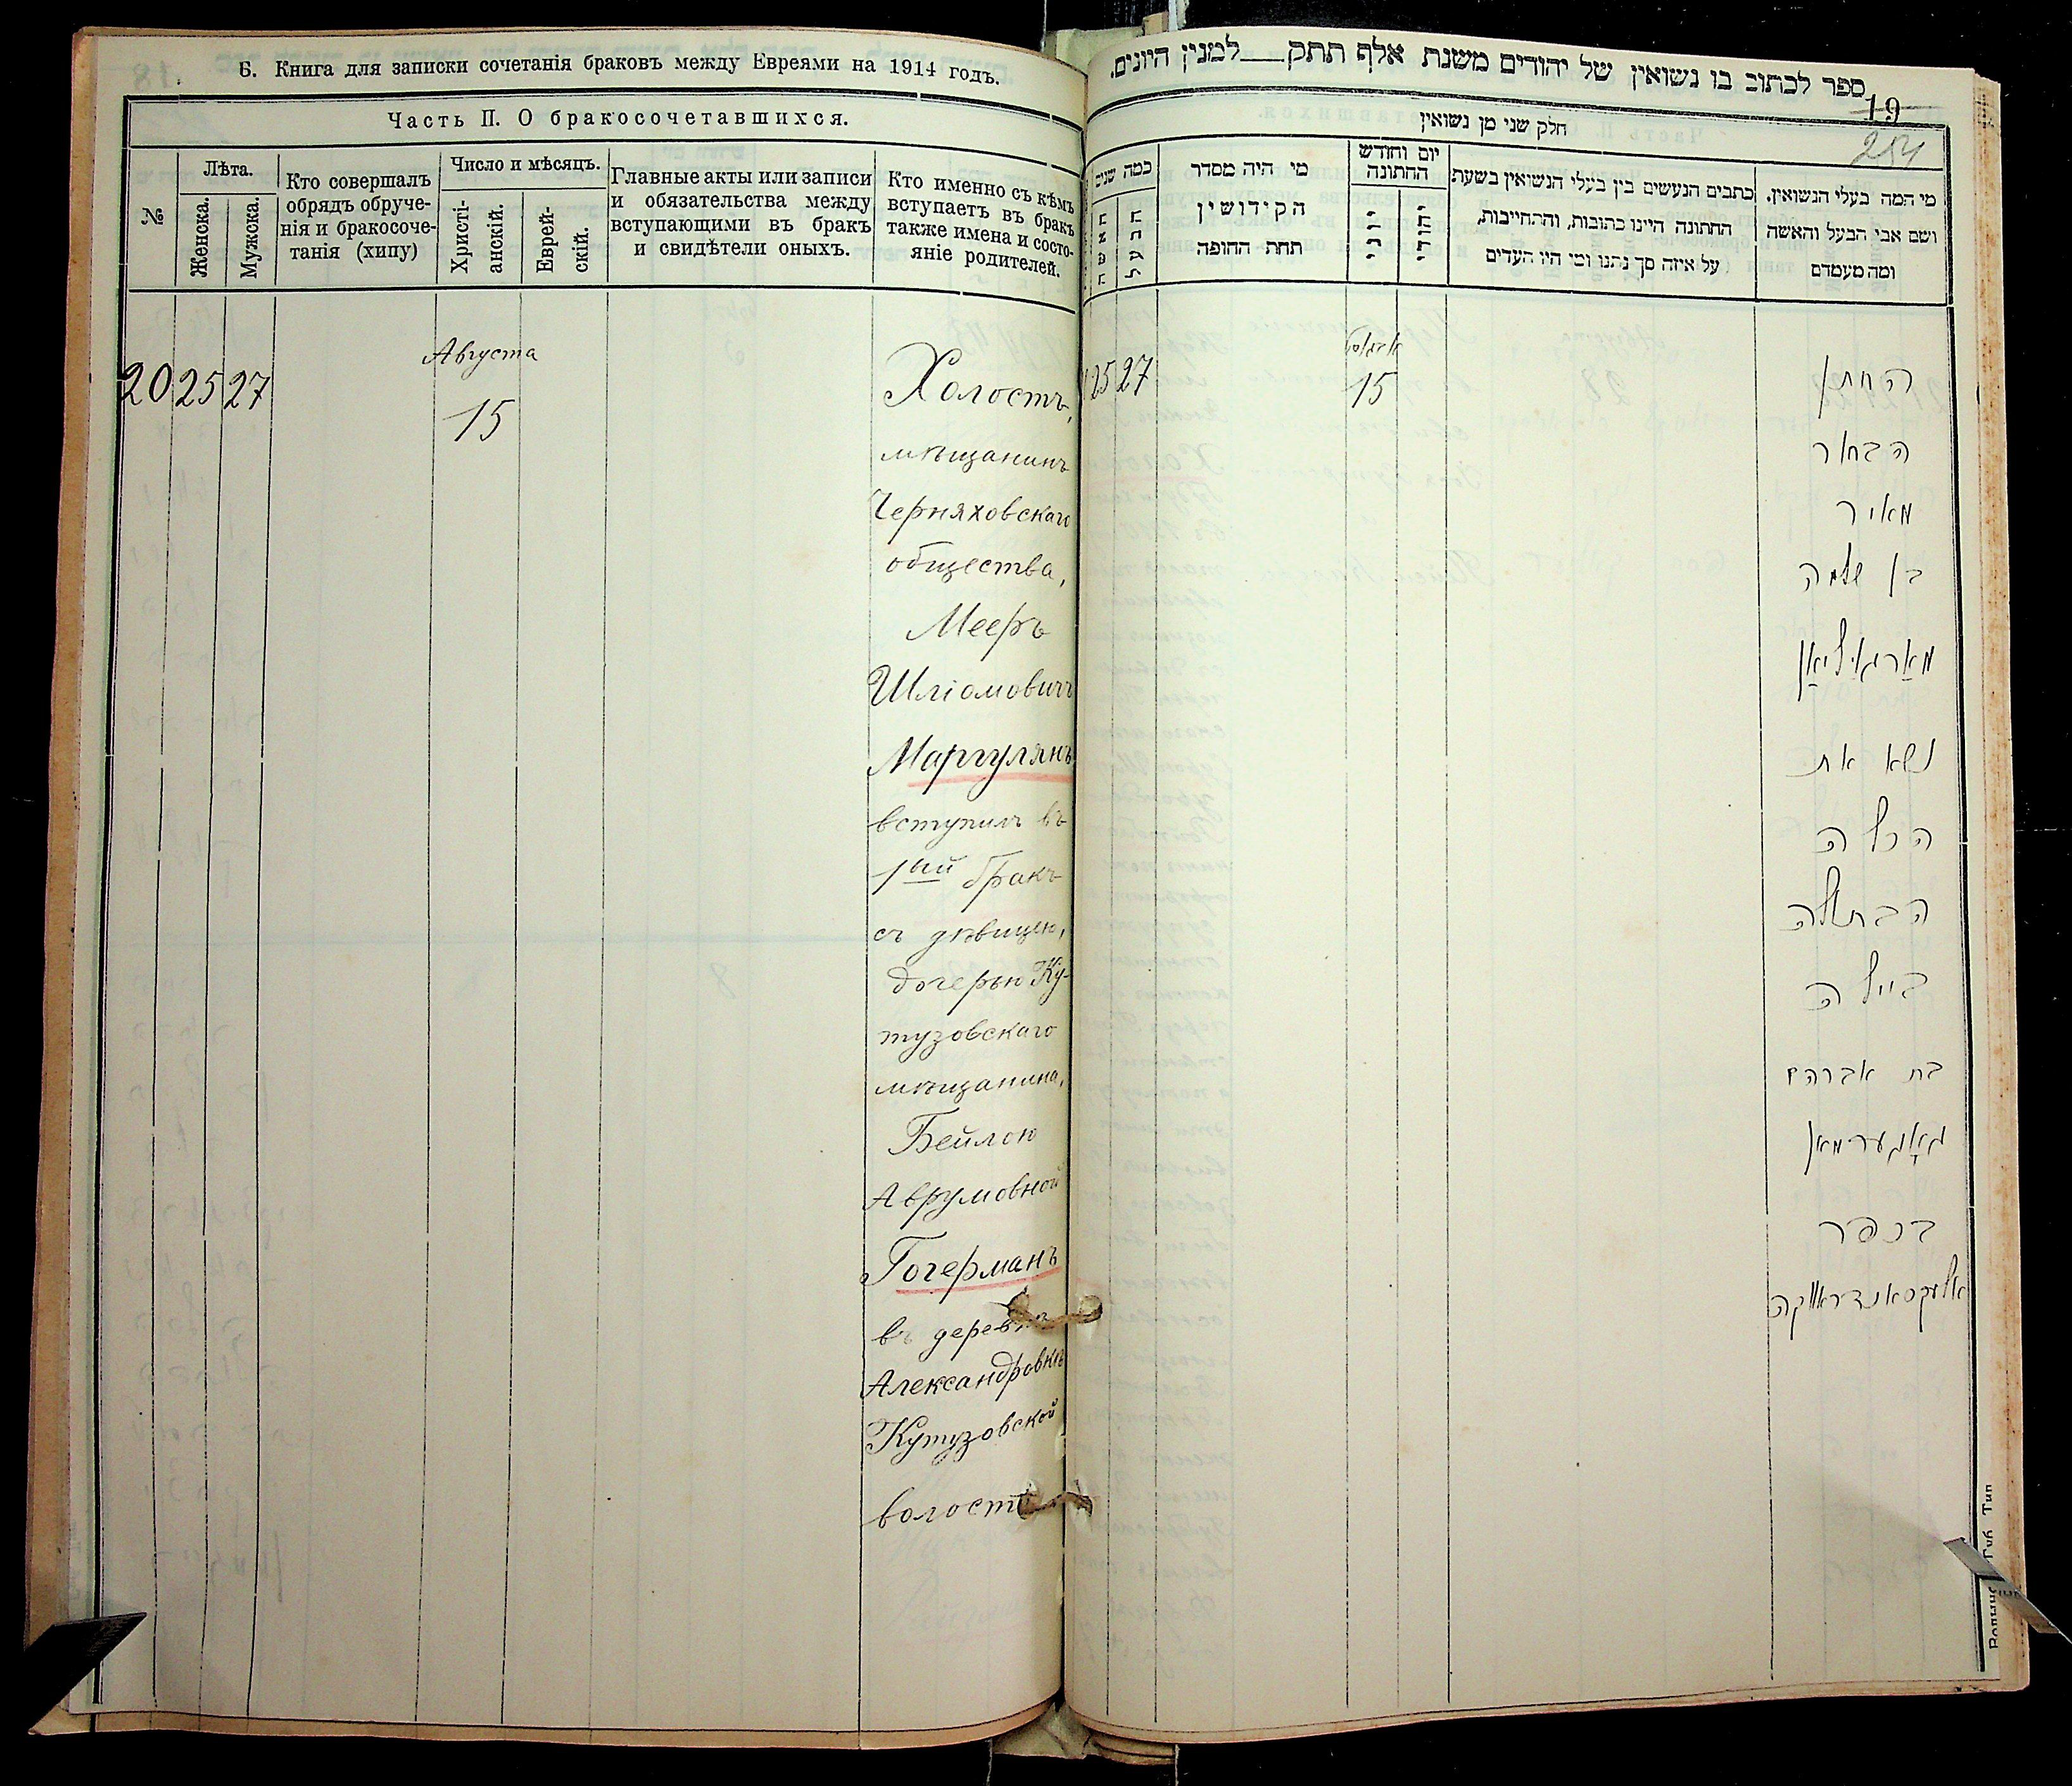 Б. Книга для записки сочетанія браковъ между Евреями на 1914 годъ.
Часть II. О бракосочетавшихся.
№
Лѣта.
Женска.
Мужска.
Кто совершалъ
обрядъ обруче-
нія и бракосоче-
танія (хипу)
Число и мѣсяцъ.
Христі-
анскій.
Еврей-
скій.
Главные акты или записи
и обязательства между
вступающими въ бракъ
и свидѣтели оныхъ.
Кто именно съ кѣмъ
вступаетъ въ бракъ
также имена и состо-
яніе родителей.
20 25 27
Августа
15
Холостъ,
мѣщанинъ
Черняховскаго
общества,
Мееръ
Шліомовичъ
Маргулянъ
вступилъ въ
1ый бракъ
съ дѣвицею,
дочерью Ку-
тузовскаго
мѣщанина,
Бейлою
Аврумовной
Гогерманъ
въ деревнѣ
Александровкѣ
Кутузовской
волости
ספר לכתוב בו נשואין של יהודים משנת אלף תתק למנין היונים.
19
254
חלק שני מן נשואין
כמה שנים
האשה
הבעל
מי היה מסדר
הקידושין
תחת החופה
יום וחודש
החתונה
כתבים הנעשים בין בעלי הנשואין בשעת
החתונה היינו כתובות, והתחייבות,
על איזה סך נתנו ומי היו העדים
מי המה בעלי הנשואין,
ושם אבי הבעל והאשה
ומה מעמדם
25 27
אווגוסט
15
החתן
הבחור
מאיר
בן שלמה
מאַרגאליאַן
נשא את
הכלה
הבתולה
ביילה
בת אברהם
גאָגערמאן
בכפר
אלעקסאנדראווקה